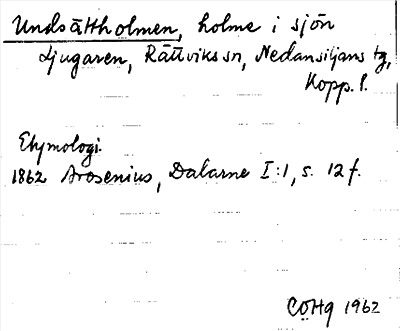 Undsättholmen, holme i sjön
Ljugaren, Rättviks sn, Nedansiljans tg,
Kopp. l.
Etymologi.
1862 Arosenius, Dalarne I:1, s. 12 f.
COHq 1962